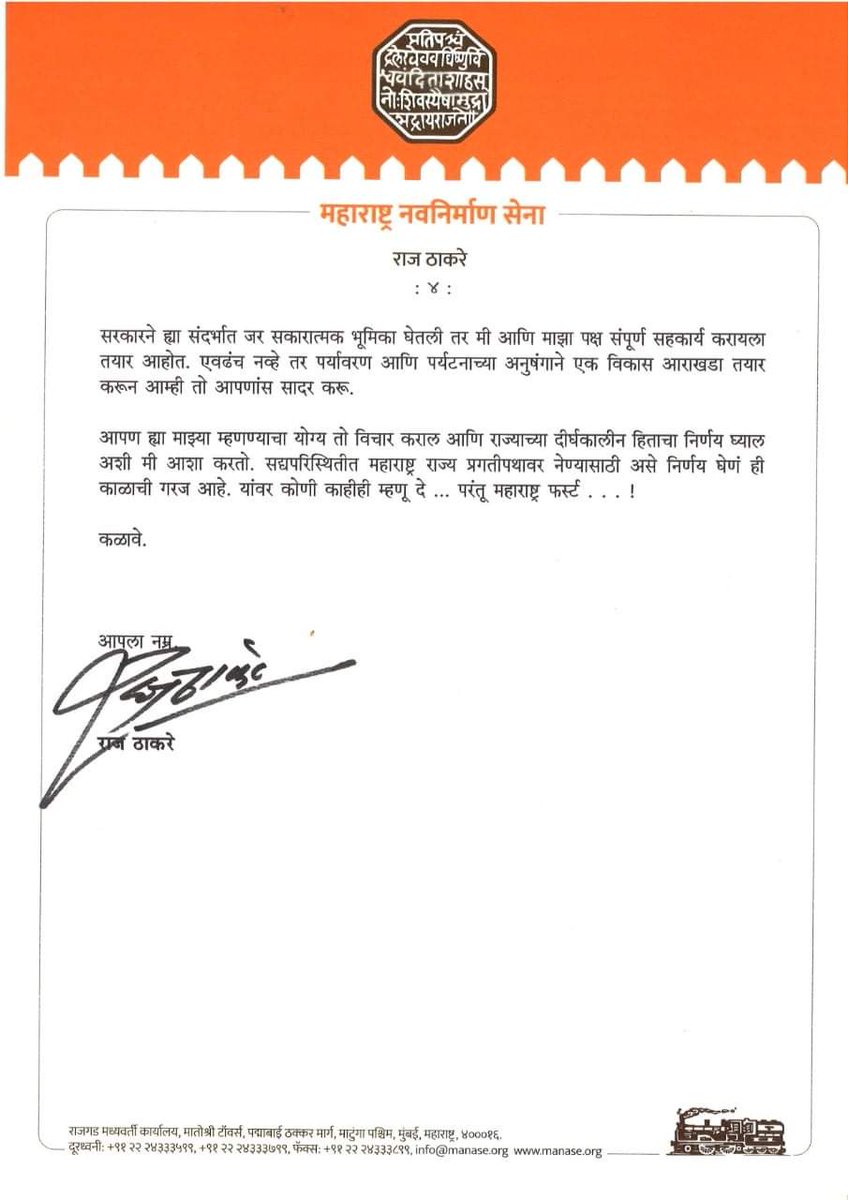 प्रतिपच्चं
द्रलेखेवव र्धिष्णुर्वि
श्ववंदिताशाहसू
नोःशिवस्यैषामुद्रा
भद्रायराजते
महाराष्ट्र नवनिर्माण सेना
राज ठाकरे
: ४ :
सरकारने ह्या संदर्भात जर सकारात्मक भूमिका घेतली तर मी आणि माझा पक्ष संपूर्ण सहकार्य करायला
तयार आहोत. एवढंच नव्हे तर पर्यावरण आणि पर्यटनाच्या अनुषंगाने एक विकास आराखडा तयार
करून आम्ही तो आपणांस सादर करू.
आपण ह्या माझ्या म्हणण्याचा योग्य तो विचार कराल आणि राज्याच्या दीर्घकालीन हिताचा निर्णय घ्याल
अशी मी आशा करतो. सद्यपरिस्थितीत महाराष्ट्र राज्य प्रगतीपथावर नेण्यासाठी असे निर्णय घेणं ही
काळाची गरज आहे. यांवर कोणी काहीही म्हणू दे ... परंतू महाराष्ट्र फर्स्ट . . . !
कळावे.
आपला नम्र,
राज ठाकरे
राज ठाकरे
राजगड मध्यवर्ती कार्यालय, मातोश्री टॉवर्स, पद्माबाई ठक्कर मार्ग, माटुंगा पश्चिम, मुंबई, महाराष्ट्र, ४०००१६.
दूरध्वनी: +९१ २२ २४३३३५९९, +९१ २२ २४३३३७९९, फॅक्स: +९१ २२ २४३३३८९९, info@manase.org www.manase.org